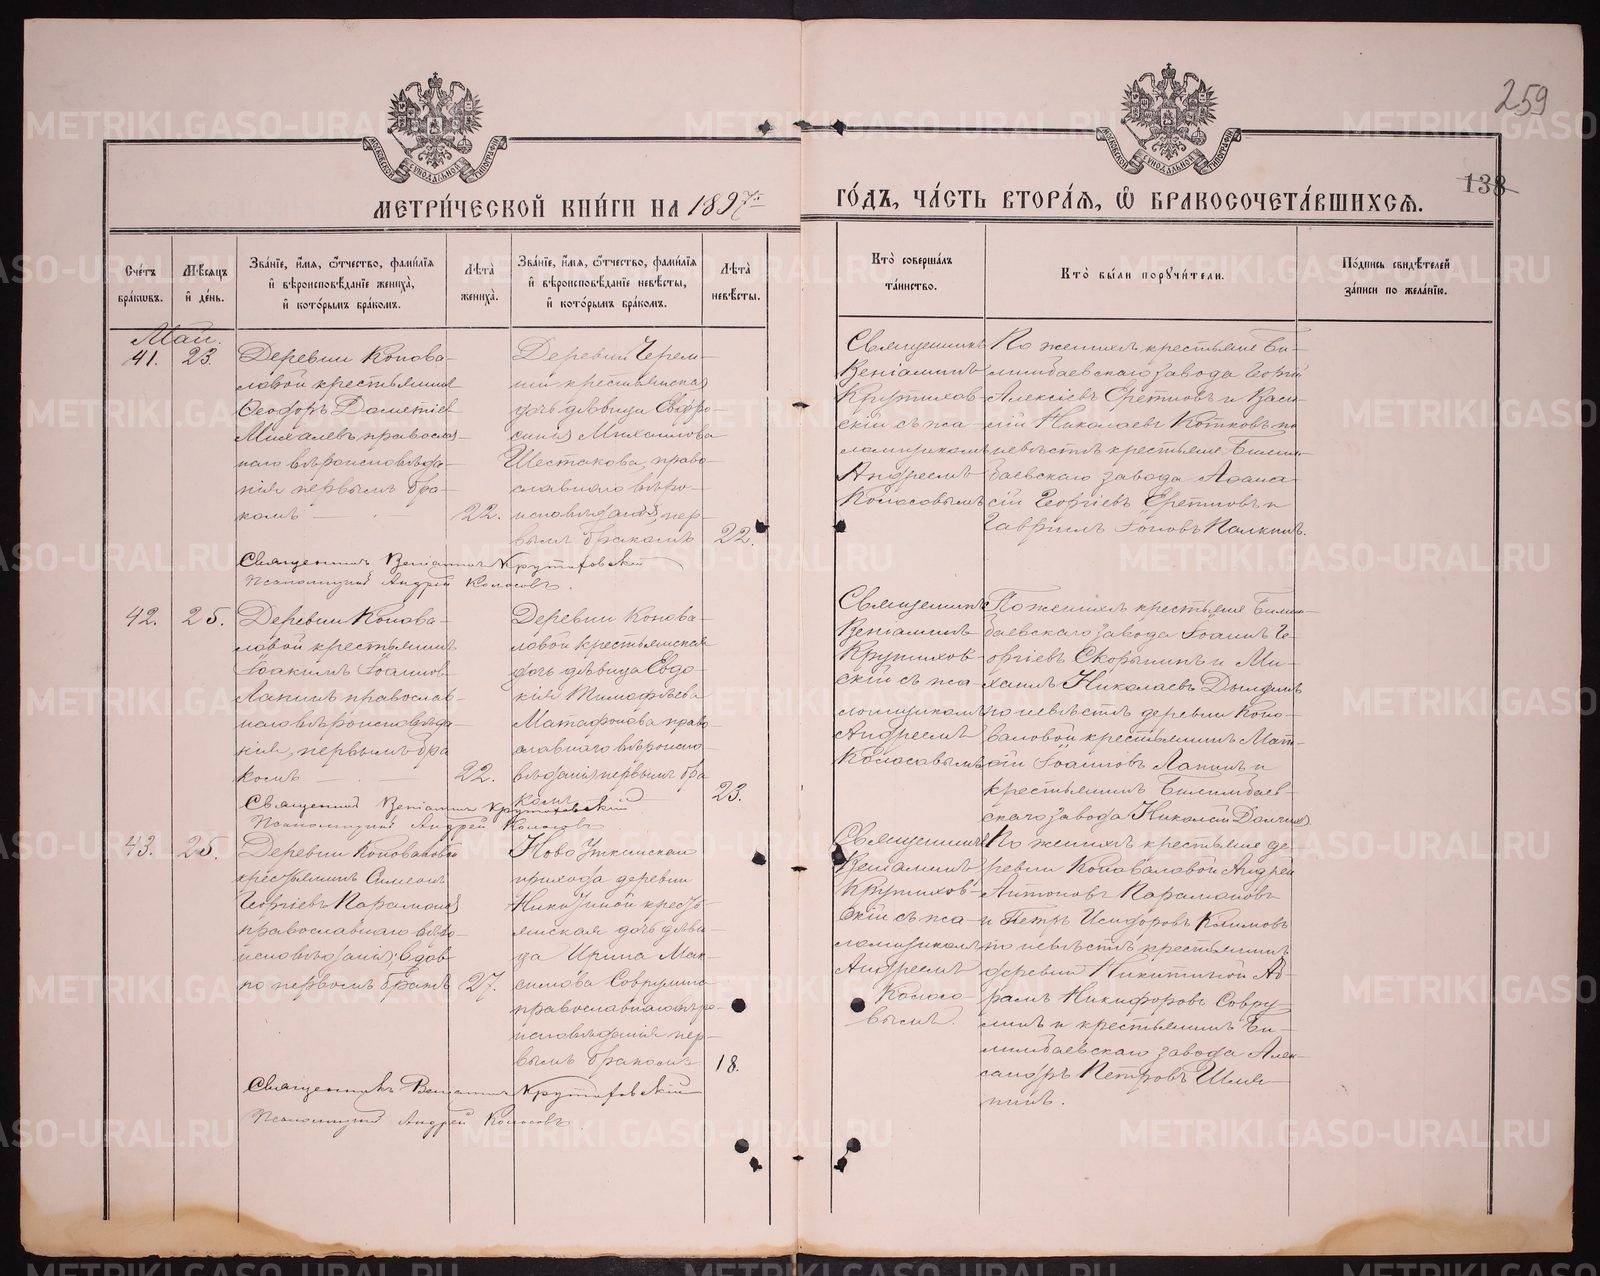 259
138
МЕТРИ́ЧЕСКОЙ КНИ́ГИ НА 1897й
ГО́ДЪ, ЧА́СТЬ ВТОРА́Я, Ѽ БРАКОСОЧЕТА́ВШИХСЯ.
Сче́тъ бра́ковъ.
Мѣ́сяцъ и҆ де́нь.
Зва́нїе, и҆́мя, ѻ҆́тчество, фами́лїя
и҆ вѣроисповѣ́данїе жениха̀,
и҆ кото́рымъ бра́комъ.
Лѣ́та жениха̀.
Зва́нїе, и҆́мя, ѻ҆́тчество, фами́лїя
и҆ вѣроисповѣ́данїе невѣ́сты,
и҆ кото́рымъ бра́комъ.
Лѣ́та невѣ́сты.
Кто̀ соверша́лъ та́инство.
Кто̀ бы́ли порꙋчи́тели.
По́дпись свидѣ́телей за́писи по жела́нїю.
Май.
41.
23.
Деревни Конова-
ловой крестьянинъ
Ѳеодоръ
Михалевъ православ-
наго вѣроисповѣда-
нія первымъ бра-
комъ
22.
Деревни Черем-
крестьянская
дочь дѣвица Евфро-
синія Михаилова
Шестакова, право-
славнаго вѣро-
исповѣданія, пер-
вымъ бракомъ
22.
Священникъ
Веніаминъ
Крутихов-
скій съ пса-
ломщикомъ
Андреемъ
Колосовымъ
По женихѣ крестьяне Би-
лимбаевскаго завода Георгій
Алексіевъ и Васи-
лій Николаевъ Котковъ по
невѣстѣ крестьяне Билим-
баевскаго завода
Георгіевъ и
Гавріилъ Іоновъ Палкинъ.
Священникъ Веніаминъ Крутиховскій
Псаломщикъ Андрей Колосовъ.
42.
25.
Деревни Конова-
ловой крестьянинъ
Іоакимъ Іоанновъ
Лапинъ православ-
наго вѣроисповѣда-
нія, первымъ бра
комъ
22.
Деревни Конова-
ловой крестьянская
дочь дѣвица Евдо-
кія Тимофѣева
Матафонова право
славнаго вѣроиспо-
вѣданія первымъ бра
комъ
23.
Священникъ
Веніаминъ
Крутихов-
скій съ пса-
ломщикомъ
Андреемъ
Колосовымъ
По женихѣ крестьяне Билим-
баевскаго завода Іоаннъ Ге-
оргіевъ Скорынинъ и Ми-
хаилъ Николаевъ
по невѣстѣ деревни Коно-
валовой крестьянинъ Мат-
ѳій Іоанновъ Лапинъ и
крестьянинъ Билимбаев-
скаго завода Николай
Священникъ Веніаминъ Крутиховскій
Псаломщикъ Андрей Колосовъ
43.
25.
Деревни Коноваловой
крестьянинъ Симеонъ
Георгіевъ Парамоновъ
православнаго вѣро-
исповѣданія, вдов
по первомъ бракѣ
27.
Ново Уткинскаго
прихода деревни
Никитиной кресть-
янская дочь дѣви-
ца Ирина Мак-
симова Соврулина
православнаго вѣро-
исповѣданія пер-
вымъ бракомъ
18.
Священникъ
Веніаминъ
Крутихов-
скій съ пса-
ломщикомъ
Андреемъ
Колосо-
вымъ.
По женихѣ крестьяне де-
ревни Коноваловой Андрей
Антоновъ Парамоновъ
и Петръ Исидоровъ Климовъ
по невѣстѣ крестьянинъ
деревни Никитиной Ав-
рамъ Никифоровъ Совру-
линъ и крестьянинъ Би-
лимбаевскаго завода Алек-
сандръ Петровъ Шиля-
нинъ.
Священникъ Веніаминъ Крутиховскій
Псаломщикъ Андрей Колосовъ.